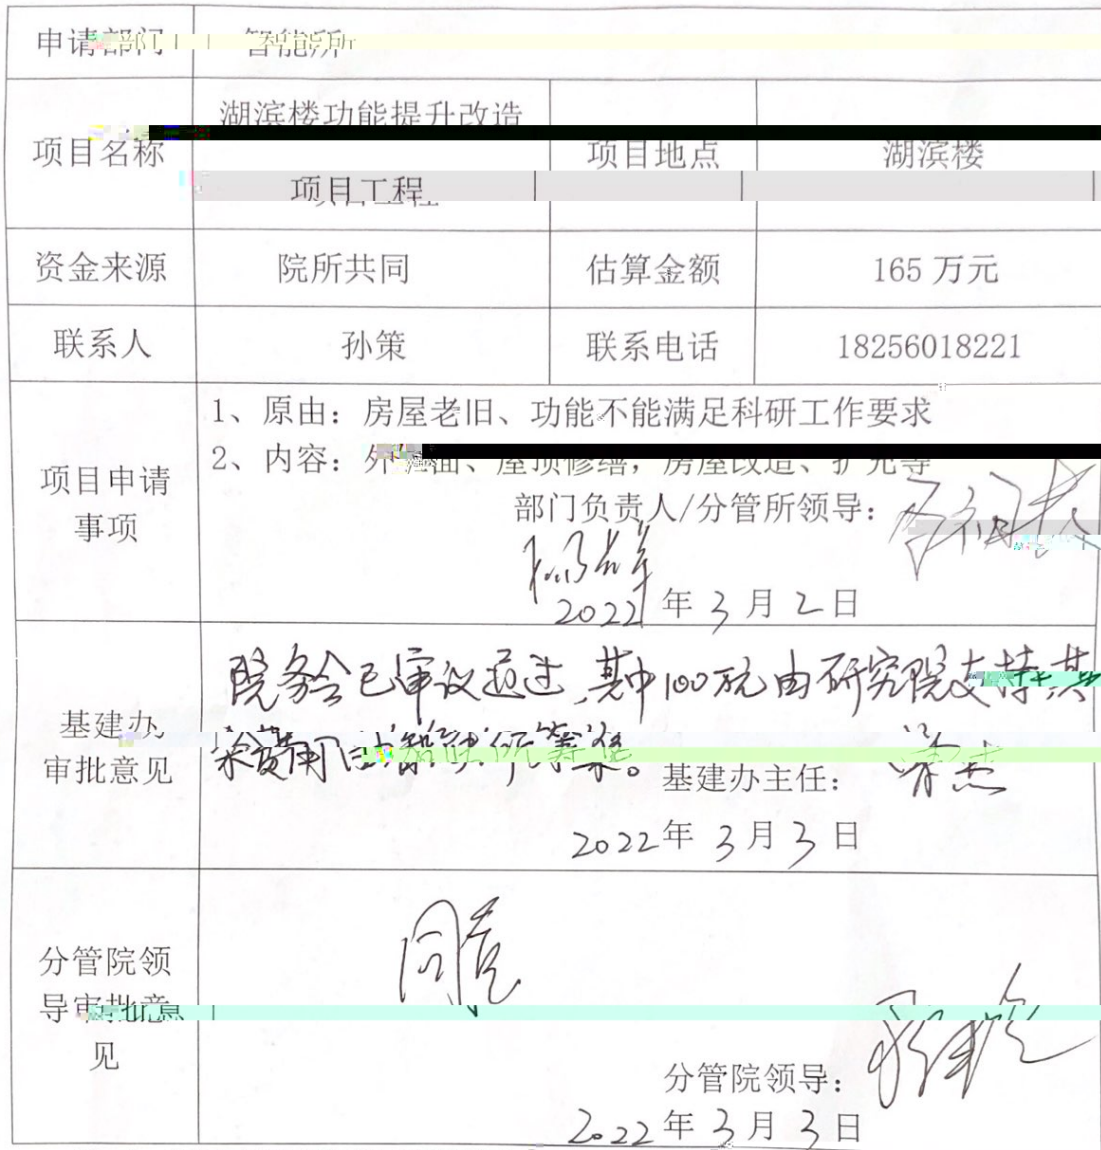 申请部门 智能所
湖滨楼功能提升改造
项目名称 项目地点 湖滨楼
项目工程
资金来源 院所共同 估算金额 165 万元
联系人 孙策 联系电话 18256018221
1、原由：房屋老旧、功能不能满足科研工作要求
2、内容：外 屋顶修缮，房屋改造、扩充等
项目申请
事项
部门负责人/分管所领导：
2022 年 3 月 2 日
院务会已审议通过，其中100万元由研究院支持，其
余费用由智能所筹集。
基建办
审批意见
基建办主任：
2022年 3月 3日
同意
分管院领
导审批意
见
分管院领导：
2022年 3月 3日